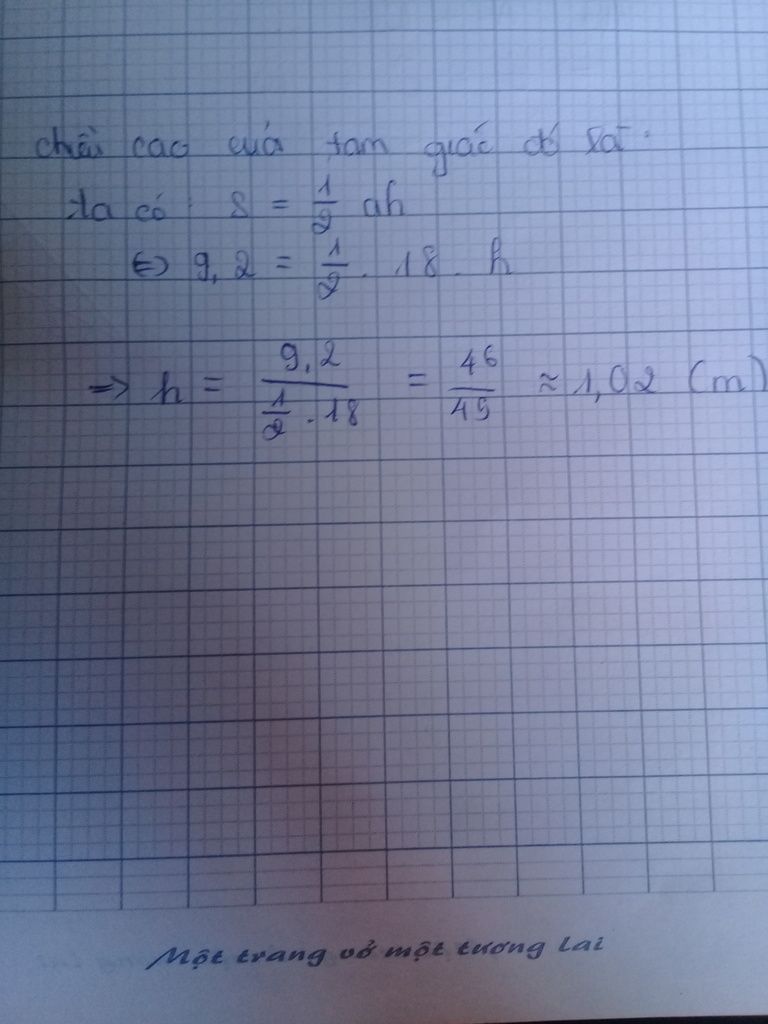 chiều cao của tam giác đó là:
Ta có: S = 1/2 ah
⇔ 9,2 = 1/2 . 18 . h
⇒ h = 9,2 / (1/2 . 18) = 46/45 ≈ 1,02 (m)
Một trang vở một tương lai